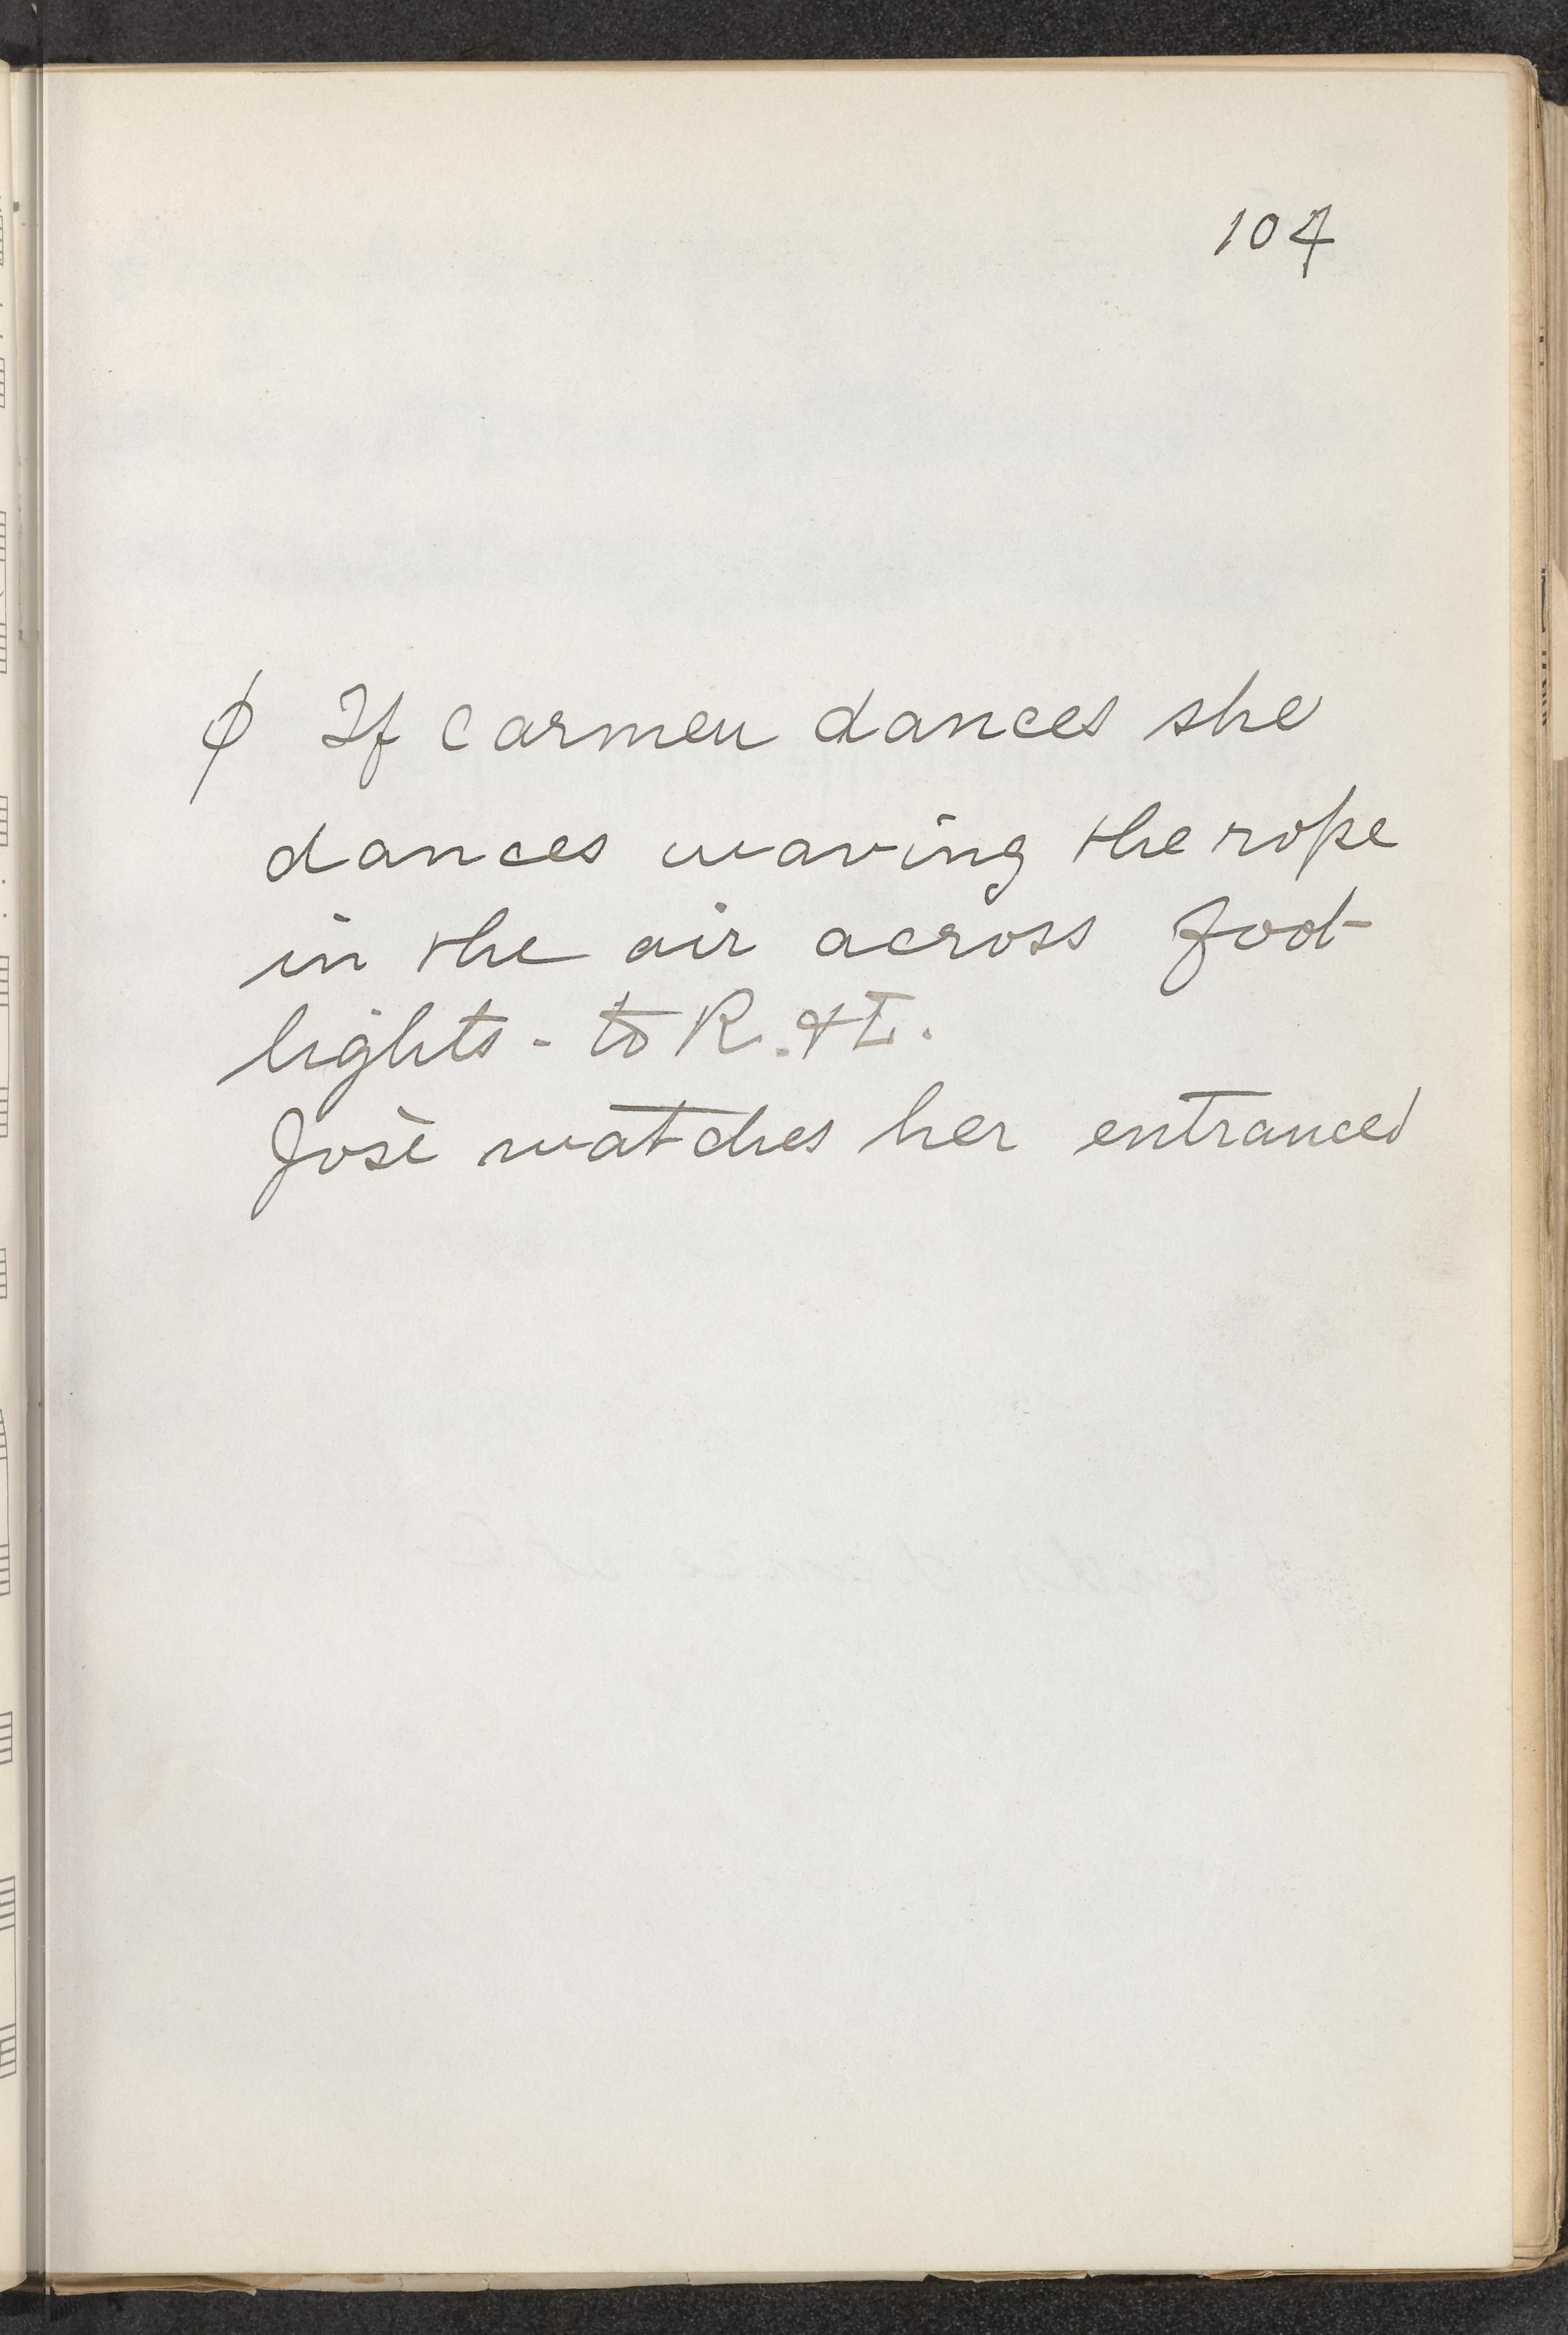 104
φ If Carmen dances she
dances waving the rope
in the air across foot
lights - to R. & L.
Josè watches her entranced